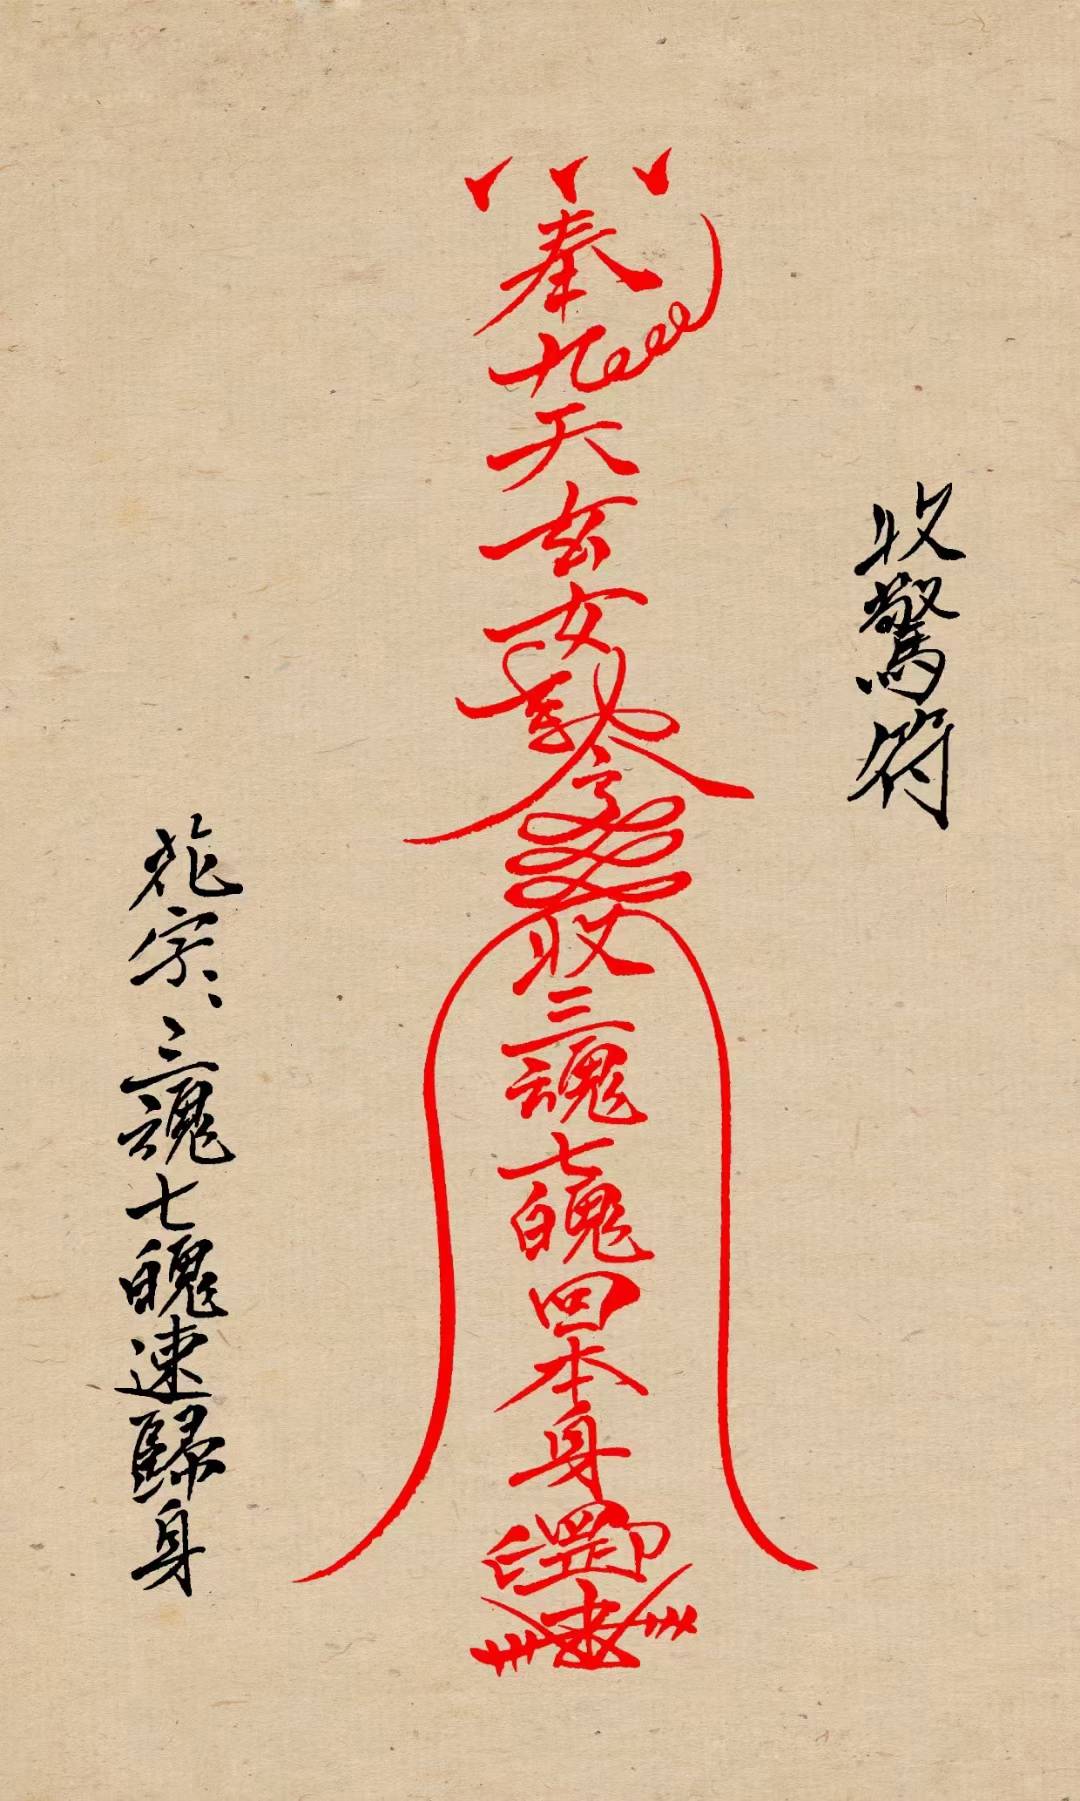 收驚符
奉九天玄女敕令收三魂七魄回本身罡印
花字、三魂七魄速歸身